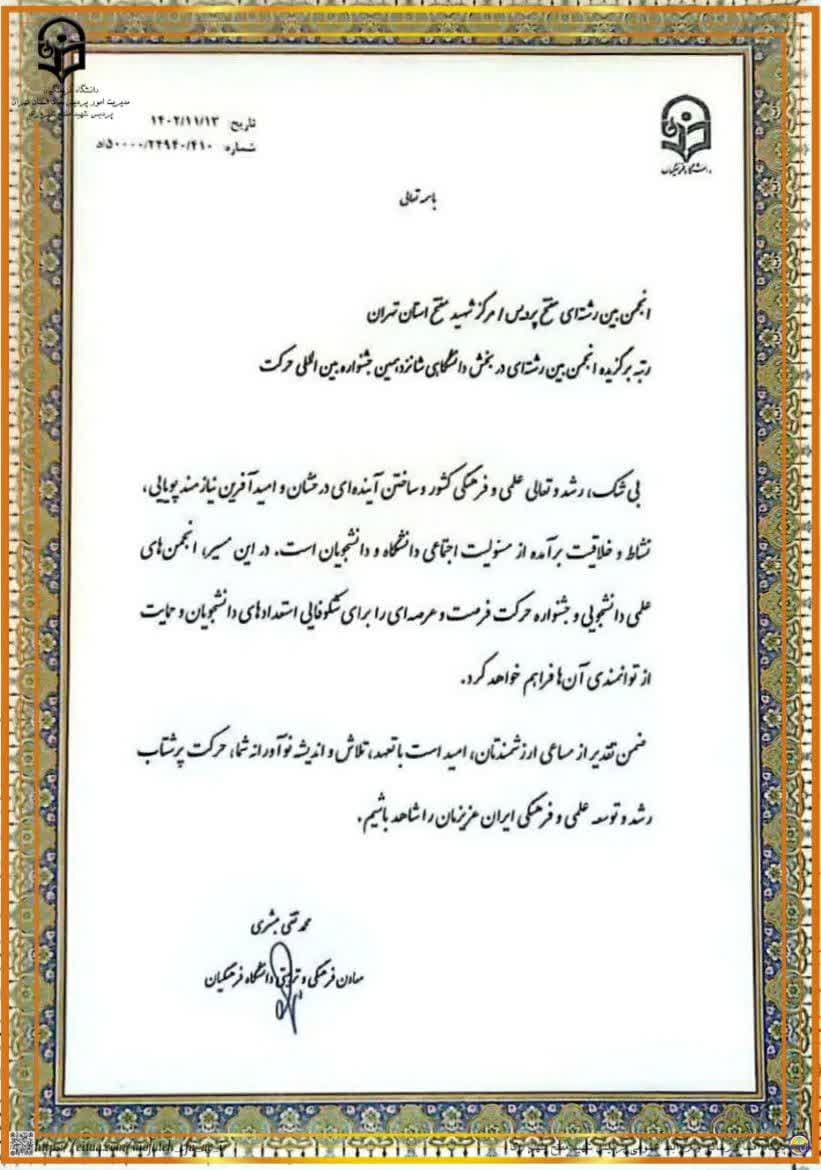 دانشگاه فرهنگیان
مدیریت امور پردیس های استان تهران
پردیس شهید مفتح
تاریخ: ۱۴۰۲/۱۱/۱۳
شماره: ۵۰۰۰۰/۲۲۹۴۰/۴۱۰/د
دانشگاه فرهنگیان
باسمه تعالی
انجمن بین رشته‌ای مفتح پردیس / مرکز شهید مفتح استان تهران
رتبه برگزیده انجمن بین رشته‌ای در بخش دانشگاهی شانزدهمین جشنواره بین المللی حرکت
بی شک، رشد و تعالی علمی و فرهنگی کشور و ساختن آینده‌ای درخشان و امیدآفرین نیازمند پویایی،
نشاط و خلاقیت برآمده از مسئولیت اجتماعی دانشگاه و دانشجویان است. در این مسیر، انجمن‌های
علمی دانشجویی و جشنواره حرکت فرصت و عرصه‌ای را برای شکوفایی استعدادهای دانشجویان و حمایت
از توانمندی آن‌ها فراهم خواهد کرد.
ضمن تقدیر از مساعی ارزشمندتان، امید است با تعهد، تلاش و اندیشه نوآورانه شما، حرکت پرشتاب
رشد و توسعه علمی و فرهنگی ایران عزیزمان را شاهد باشیم.
محمد تقی مبشری
معاون فرهنگی و تربیتی دانشگاه فرهنگیان